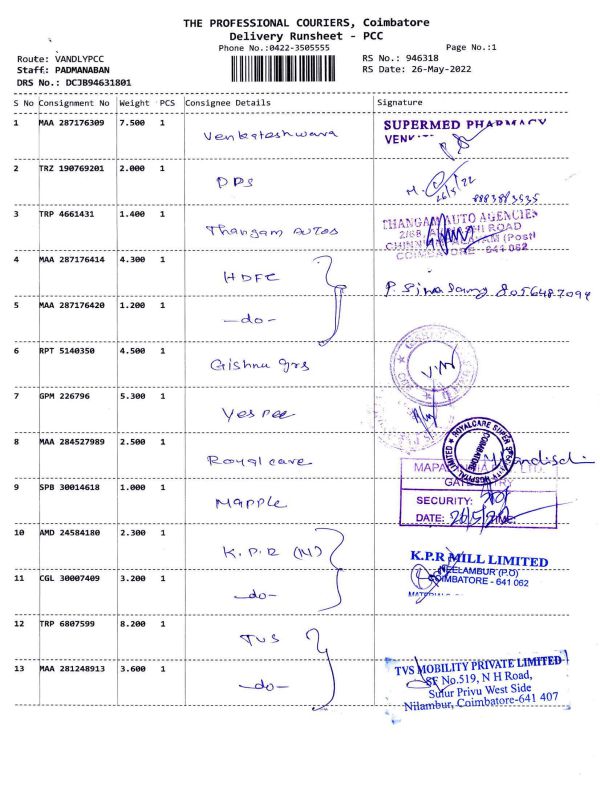 THE PROFESSIONAL COURIERS, Coimbatore
Delivery Runsheet - PCC
Phone No.:0422-3505555
Page No.:1
Route: VANDLYPCC
RS No.: 946318
Staff: PADMANABAN
RS Date: 26-May-2022
DRS No.: DCJB94631801
S No Consignment No Weight PCS Consignee Details Signature
1 MAA 287176309 7.500 1 Venkateshwara SUPERMED PHARMACY
2 TRZ 190769201 2.000 1 DPS
26/5/22
3 TRP 4661431 1.400 1 Thangam AUTOS THANGAM AUTO AGENCIES
COIMBATORE 641 062
4 MAA 287176414 4.300 1 HDFC
8056487094
5 MAA 287176420 1.200 1 -do-
6 RPT 5140350 4.500 1
7 GPM 226796 5.300 1
8 MAA 284527989 2.500 1 Royal care ROYALCARE SUPER SPECIALITY HOSPITAL LIMITED
COIMBATORE
9 SPB 30014618 1.000 1 Mapple
SECURITY:
DATE:
10 AMD 24584180 2.300 1 K.P.R (M) K.P.R MILL LIMITED
NEELAMBUR (P.O)
COIMBATORE - 641 062
11 CGL 30007409 3.200 1 -do-
12 TRP 6807599 8.200 1 TVS
13 MAA 281248913 3.600 1 -do- TVS MOBILITY PRIVATE LIMITED
SF No.519, N H Road,
Sulur Privu West Side
Nilambur, Coimbatore-641 407